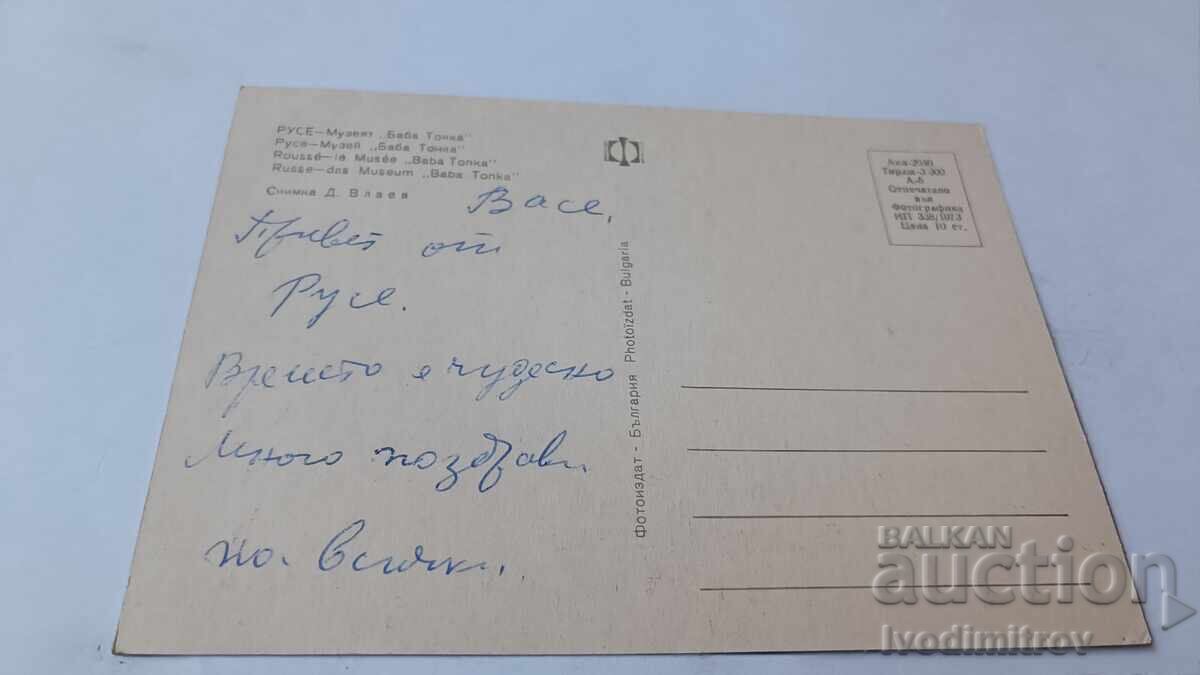 РУСЕ—Музеят „Баба Тонка"
Русе—Музей „Баба Тонка"
Roussé—le Musée „Baba Tonka"
Russe—das Museum „Baba Tonka"
Снимка Д. Влаев
Васе,
Привет от
Русе.
Времето е чудесно
Много поздрави
на всички.
Фотоиздат - България Photoizdat - Bulgaria
Акл-2040
Тираж-3 000
А-6
Отпечатано
във
Фотографика
ИП 338/1973
Цена 10 ст.
BALKAN
auction
Ivodimitrov